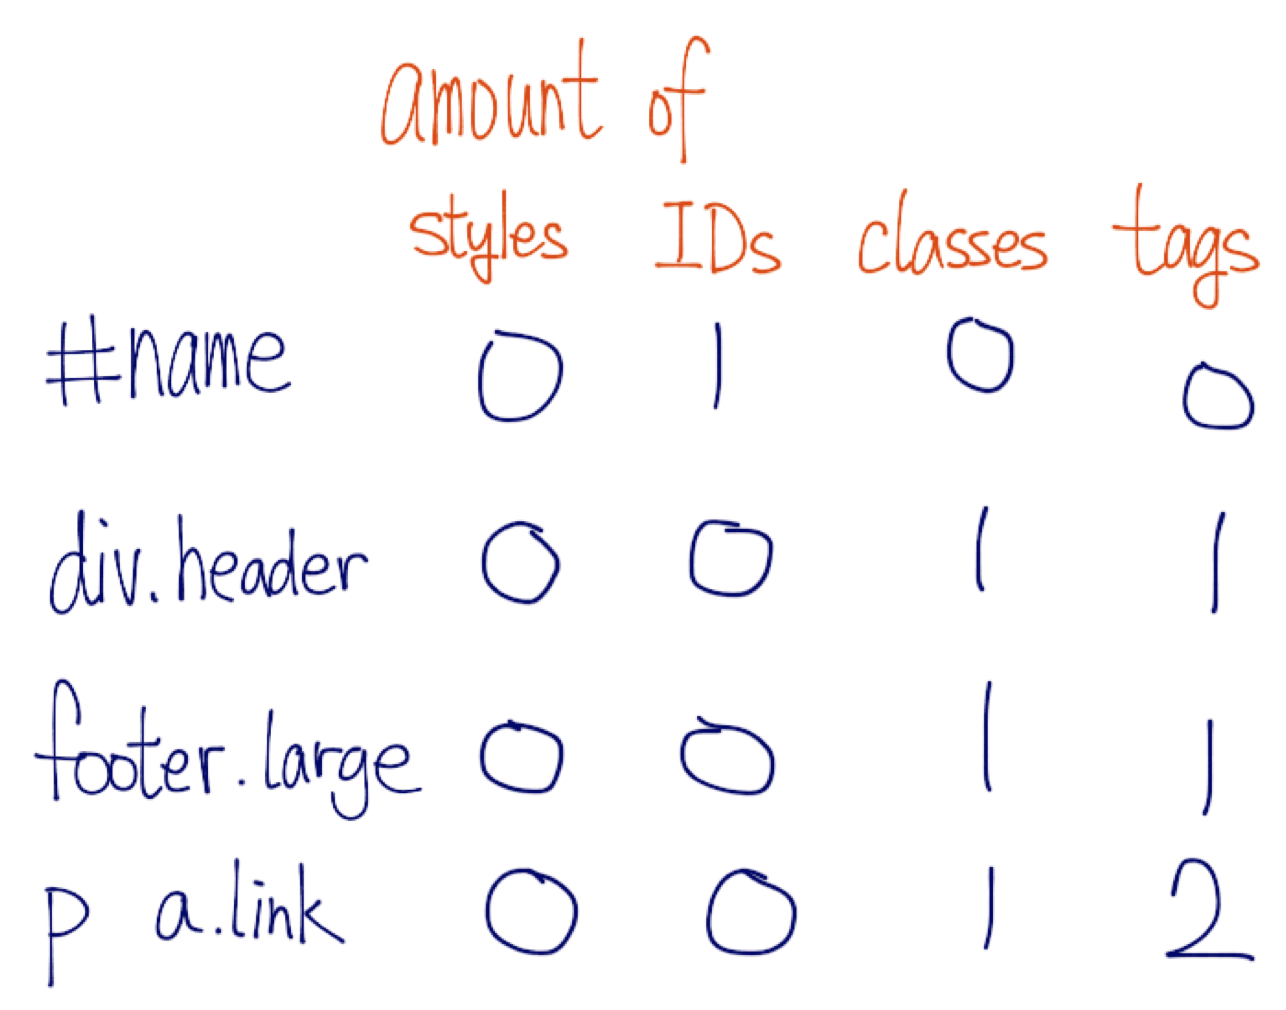 amount of
styles IDs classes tags
#name 0 1 0 0
div.header 0 0 1 1
footer.large 0 0 1 1
p a.link 0 0 1 2